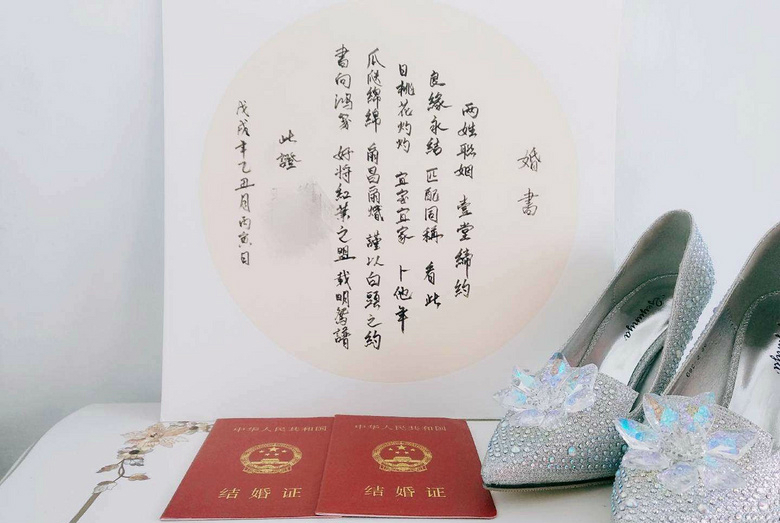 婚書
两姓聯姻 壹堂締約
良緣永结 匹配同稱 看此
日桃花灼灼 宜室宜家 卜他年
瓜瓞綿綿 爾昌爾熾 謹以白頭之約
書向鴻箋 好將紅葉之盟 載明鴛譜
此證
戊戌年乙丑月丙寅日
中华人民共和国
结婚证
中华人民共和国
结婚证